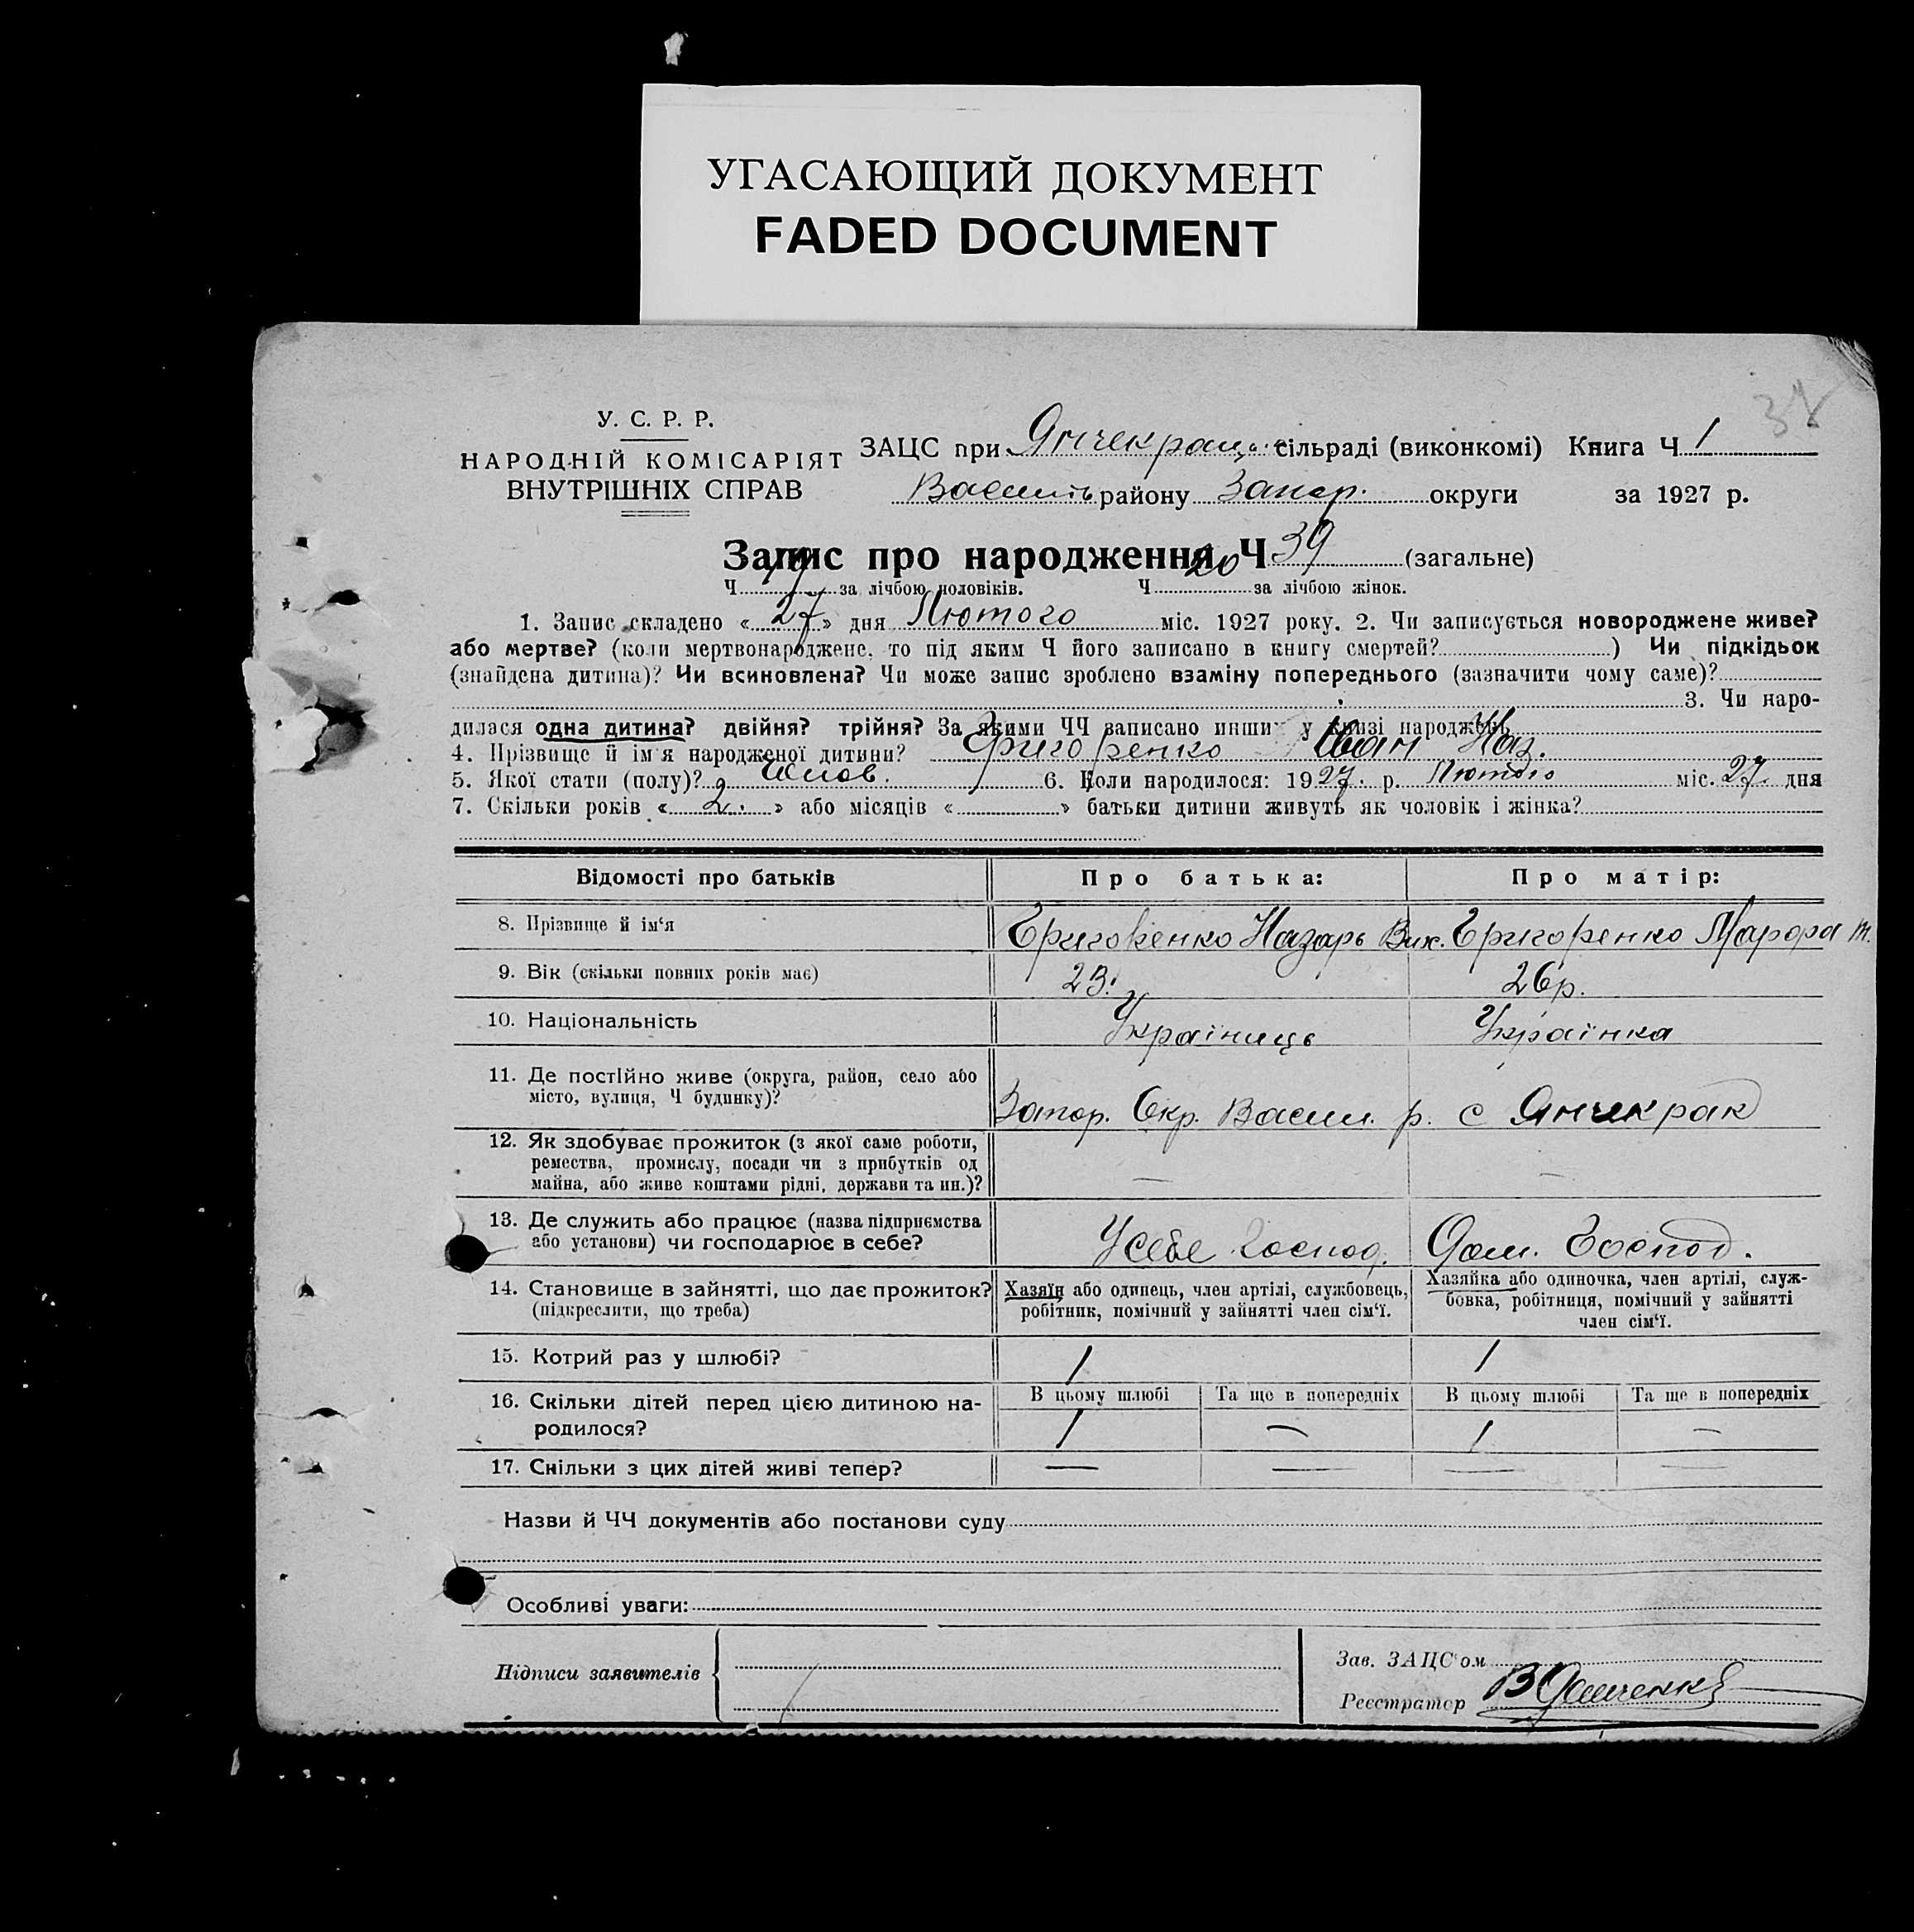 УГАСАЮЩИЙ ДОКУМЕНТ
FADED DOCUMENT
У. С. Р. Р.
НАРОДНІЙ КОМІСАРІЯТ
ВНУТРІШНІХ СПРАВ
ЗАЦС при Янчекрац. сільраді (виконкомі) Книга Ч 1
Васил. району Запор. округи за 1927 р.
Запис про народження Ч 39 (загальне)
Ч 19 за лічбою чоловіків. Ч 20 за лічбою жінок.
1. Запис складено « 27 » дня Лютого міс. 1927 року. 2. Чи записується новороджене живе?
або мертве? (коли мертвонароджене, то під яким Ч його записано в книгу смертей? ) Чи підкідьок
(знайдена дитина)? Чи всиновлена? Чи може запис зроблено взаміну попереднього (зазначити чому саме)?
3. Чи наро-
дилася одна дитина? двійня? трійня? За якими ЧЧ записано инших у книзі народжень
4. Прізвище й ім'я народженої дитини? Григоренко Іван Наз.
5. Якої стати (полу)? Чолов. 6. Коли народилося: 1927. р. Лютого міс. 27. дня
7. Скільки років « 2. » або місяців « » батьки дитини живуть як чоловік і жінка?
Відомості про батьків Про батька: Про матір:
8. Прізвище й ім'я Григоренко Назарь Григоренко
9. Вік (скільки повних років має) 23. 26 р.
10. Національність Україниць Українка
11. Де постійно живе (округа, район, село або
місто, вулиця, Ч будинку)? Запор. Окр. Васил. р. с Янчекрак
12. Як здобуває прожиток (з якої саме роботи,
ремества, промислу, посади чи з прибутків од
майна, або живе коштами рідні, держави та ин.)? — —
13. Де служить або працює (назва підприємства
або установи) чи господарює в себе? У себе Господ. Дом. Господ.
14. Становище в зайнятті, що дає прожиток?
(підкреслити, що треба)
Хазяїн або одинець, член артілі, службовець,
робітник, помічний у зайнятті член сім'ї.
Хазяйка або одиночка, член артілі, служ-
бовка, робітниця, помічний у зайнятті
член сім'ї.
15. Котрий раз у шлюбі? 1 1
16. Скільки дітей перед цією дитиною на-
родилося?
В цьому шлюбі Та ще в попередніх В цьому шлюбі Та ще в попередніх
1 — 1 —
17. Скільки з цих дітей живі тепер? — — — —
Назви й ЧЧ документів або постанови суду
Особливі уваги:
Підписи заявителів
Зав. ЗАЦС'ом
Реєстратор